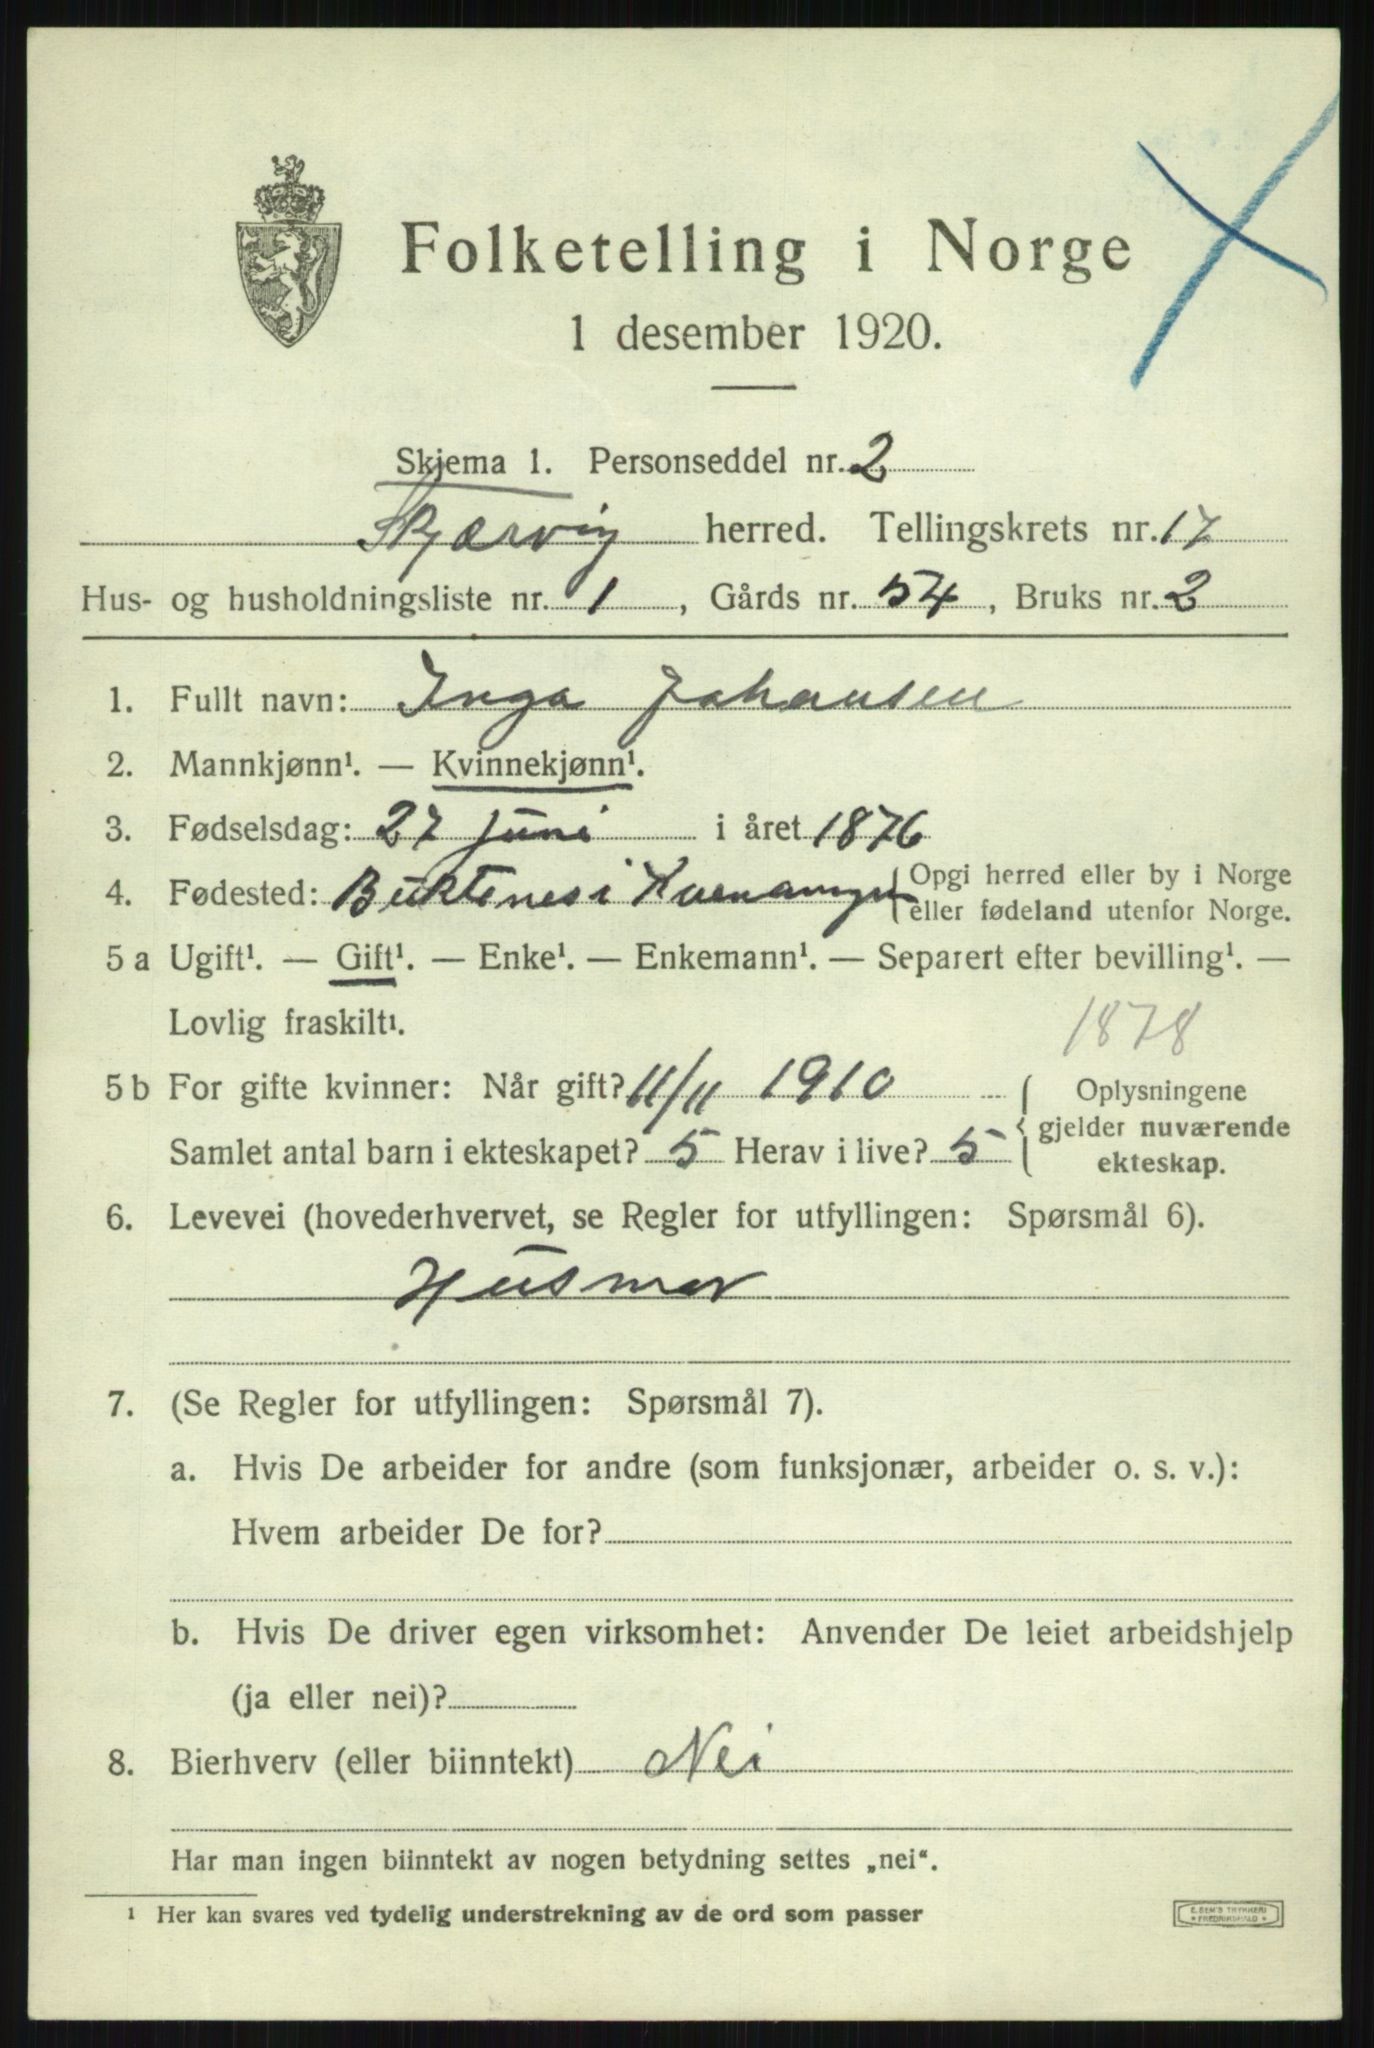 Folketelling i Norge
1 desember 1920.
Skjema 1. Personseddel nr. 2
Skjærvøy herred. Tellingskrets nr. 17
Hus- og husholdningsliste nr. 1, Gårds nr. 54, Bruks nr. 2
1. Fullt navn: Inga Johansen
2. Mannkjønn¹. — Kvinnekjønn¹.
3. Fødselsdag: 27 juni i året 1876
4. Fødested: Buktenes i Kvænangen Opgi herred eller by i Norge
eller fødeland utenfor Norge.
5 a Ugift¹. — Gift¹. — Enke¹. — Enkemann¹. — Separert efter bevilling¹. —
Lovlig fraskilt¹.
1878
5 b For gifte kvinner: Når gift? 11/11 1910 Oplysningene
gjelder nuværende
Samlet antal barn i ekteskapet? 5 Herav i live? 5 ekteskap.
6. Levevei (hovederhvervet, se Regler for utfyllingen: Spørsmål 6).
Husmor
7. (Se Regler for utfyllingen: Spørsmål 7).
a. Hvis De arbeider for andre (som funksjonær, arbeider o. s. v.):
Hvem arbeider De for?
b. Hvis De driver egen virksomhet: Anvender De leiet arbeidshjelp
(ja eller nei)?
8. Bierhverv (eller biinntekt) Nei
Har man ingen biinntekt av nogen betydning settes „nei“.
¹ Her kan svares ved tydelig understrekning av de ord som passer
E. SEM'S TRYKKERI
FREDRIKSHALD